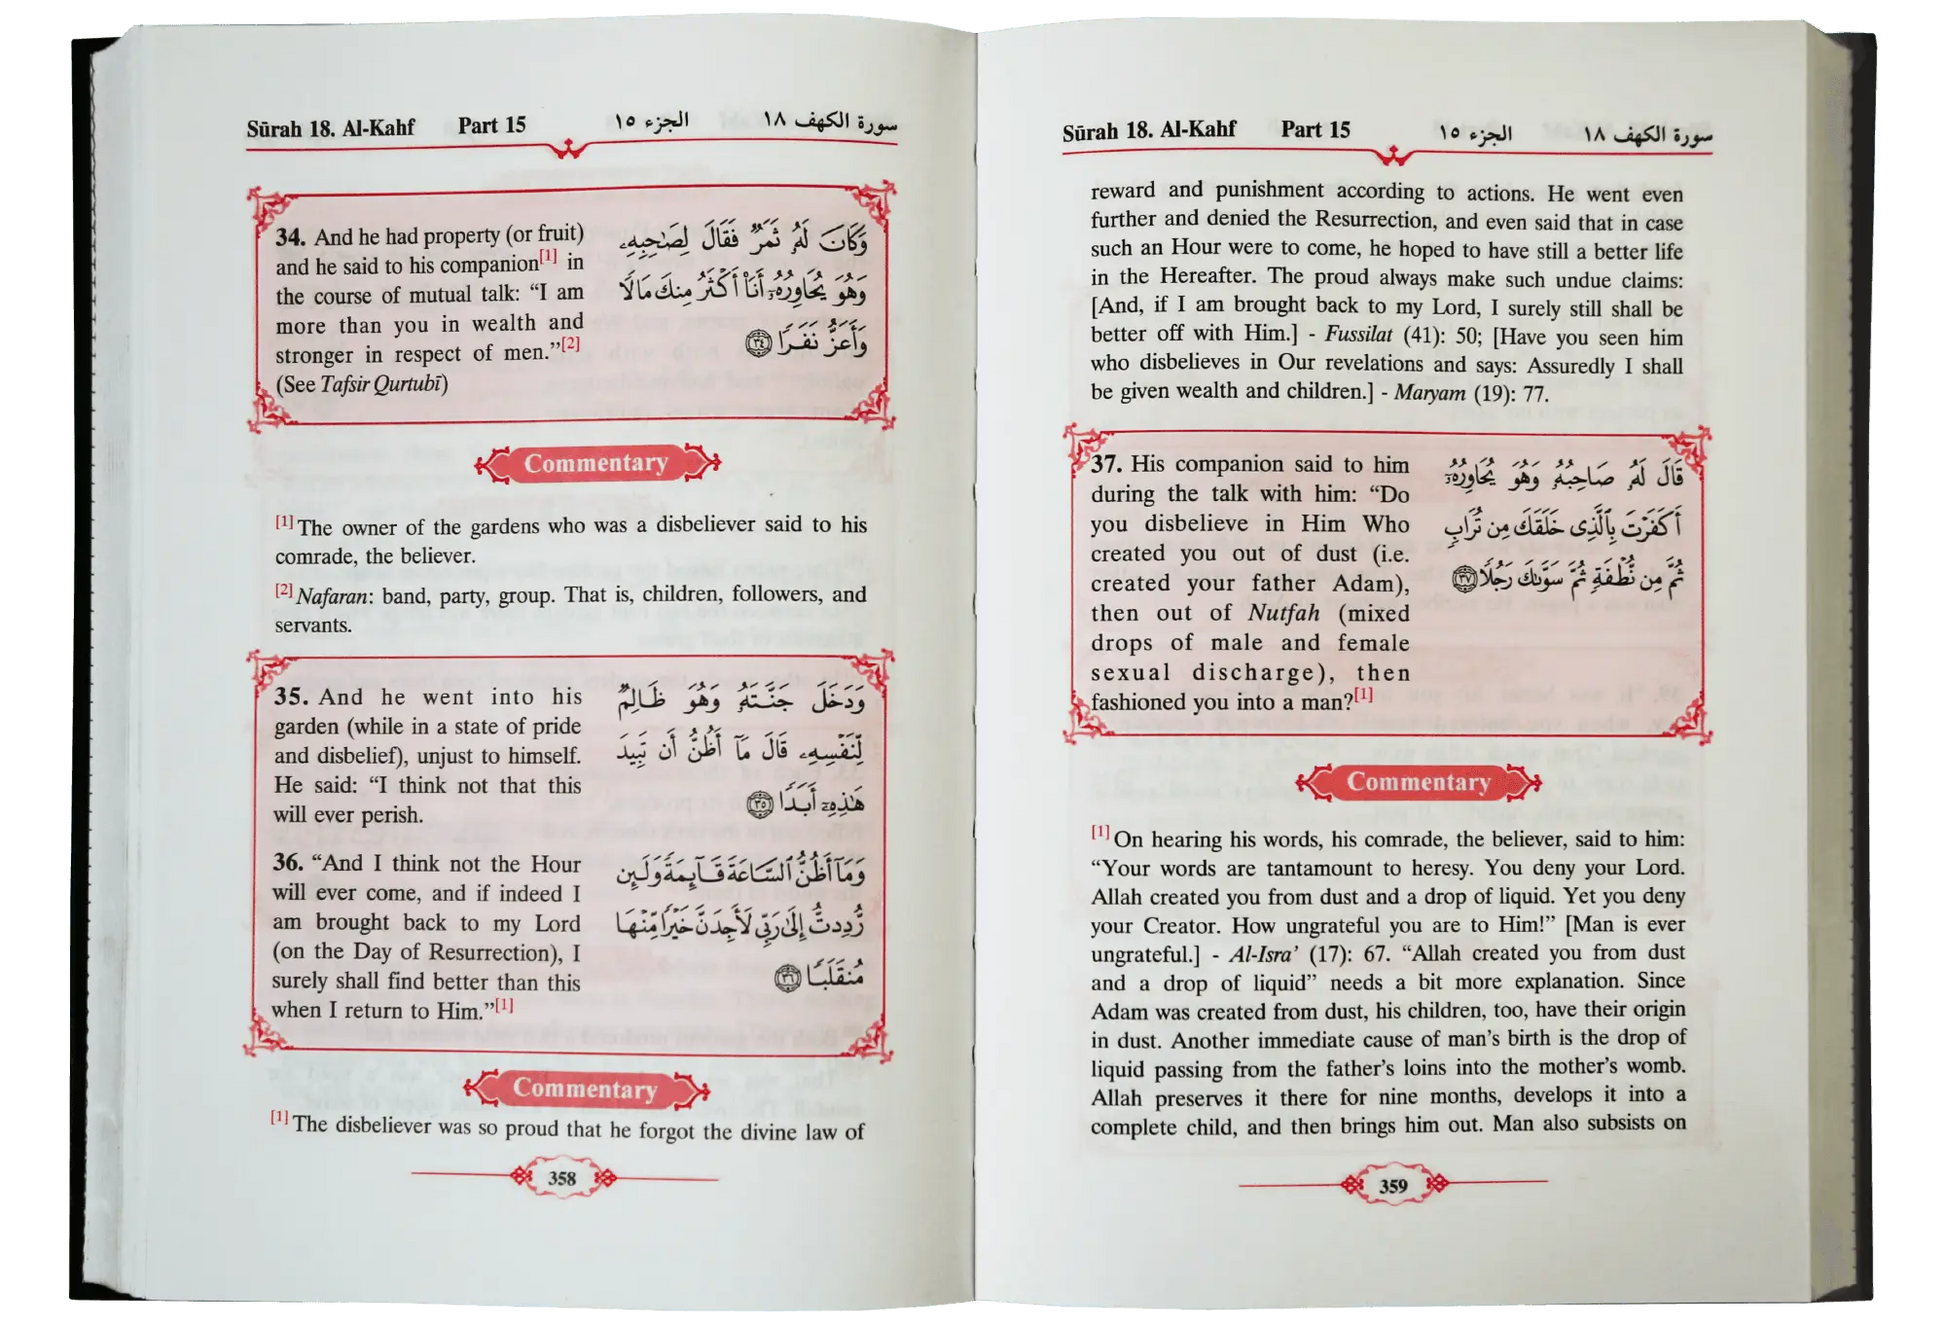 Sūrah 18. Al-Kahf Part 15 الجزء ١٥ سورة الكهف ١٨
34. And he had property (or fruit)
and he said to his companion[1] in
the course of mutual talk: “I am
more than you in wealth and
stronger in respect of men.”[2]
(See Tafsir Qurtubī)
وَكَانَ لَهُۥ ثَمَرٌ فَقَالَ لِصَـٰحِبِهِۦ
وَهُوَ يُحَاوِرُهُۥٓ أَنَا۠ أَكْثَرُ مِنكَ مَالًا
وَأَعَزُّ نَفَرًا ٣٤
Commentary
[1] The owner of the gardens who was a disbeliever said to his
comrade, the believer.
[2] Nafaran: band, party, group. That is, children, followers, and
servants.
35. And he went into his
garden (while in a state of pride
and disbelief), unjust to himself.
He said: “I think not that this
will ever perish.
وَدَخَلَ جَنَّتَهُۥ وَهُوَ ظَالِمٌ
لِّنَفْسِهِۦ قَالَ مَآ أَظُنُّ أَن تَبِيدَ
هَـٰذِهِۦٓ أَبَدًا ٣٥
36. “And I think not the Hour
will ever come, and if indeed I
am brought back to my Lord
(on the Day of Resurrection), I
surely shall find better than this
when I return to Him.”[1]
وَمَآ أَظُنُّ ٱلسَّاعَةَ قَآئِمَةً وَلَئِن
رُّدِدتُّ إِلَىٰ رَبِّى لَأَجِدَنَّ خَيْرًا مِّنْهَا
مُنقَلَبًا ٣٦
Commentary
[1] The disbeliever was so proud that he forgot the divine law of
358
Sūrah 18. Al-Kahf Part 15 الجزء ١٥ سورة الكهف ١٨
reward and punishment according to actions. He went even
further and denied the Resurrection, and even said that in case
such an Hour were to come, he hoped to have still a better life
in the Hereafter. The proud always make such undue claims:
[And, if I am brought back to my Lord, I surely still shall be
better off with Him.] - Fussilat (41): 50; [Have you seen him
who disbelieves in Our revelations and says: Assuredly I shall
be given wealth and children.] - Maryam (19): 77.
37. His companion said to him
during the talk with him: “Do
you disbelieve in Him Who
created you out of dust (i.e.
created your father Adam),
then out of Nutfah (mixed
drops of male and female
sexual discharge), then
fashioned you into a man?[1]
قَالَ لَهُۥ صَاحِبُهُۥ وَهُوَ يُحَاوِرُهُۥٓ
أَكَفَرْتَ بِٱلَّذِى خَلَقَكَ مِن تُرَابٍ
ثُمَّ مِن نُّطْفَةٍ ثُمَّ سَوَّىٰكَ رَجُلًا ٣٧
Commentary
[1] On hearing his words, his comrade, the believer, said to him:
“Your words are tantamount to heresy. You deny your Lord.
Allah created you from dust and a drop of liquid. Yet you deny
your Creator. How ungrateful you are to Him!” [Man is ever
ungrateful.] - Al-Isra’ (17): 67. “Allah created you from dust
and a drop of liquid” needs a bit more explanation. Since
Adam was created from dust, his children, too, have their origin
in dust. Another immediate cause of man’s birth is the drop of
liquid passing from the father’s loins into the mother’s womb.
Allah preserves it there for nine months, develops it into a
complete child, and then brings him out. Man also subsists on
359